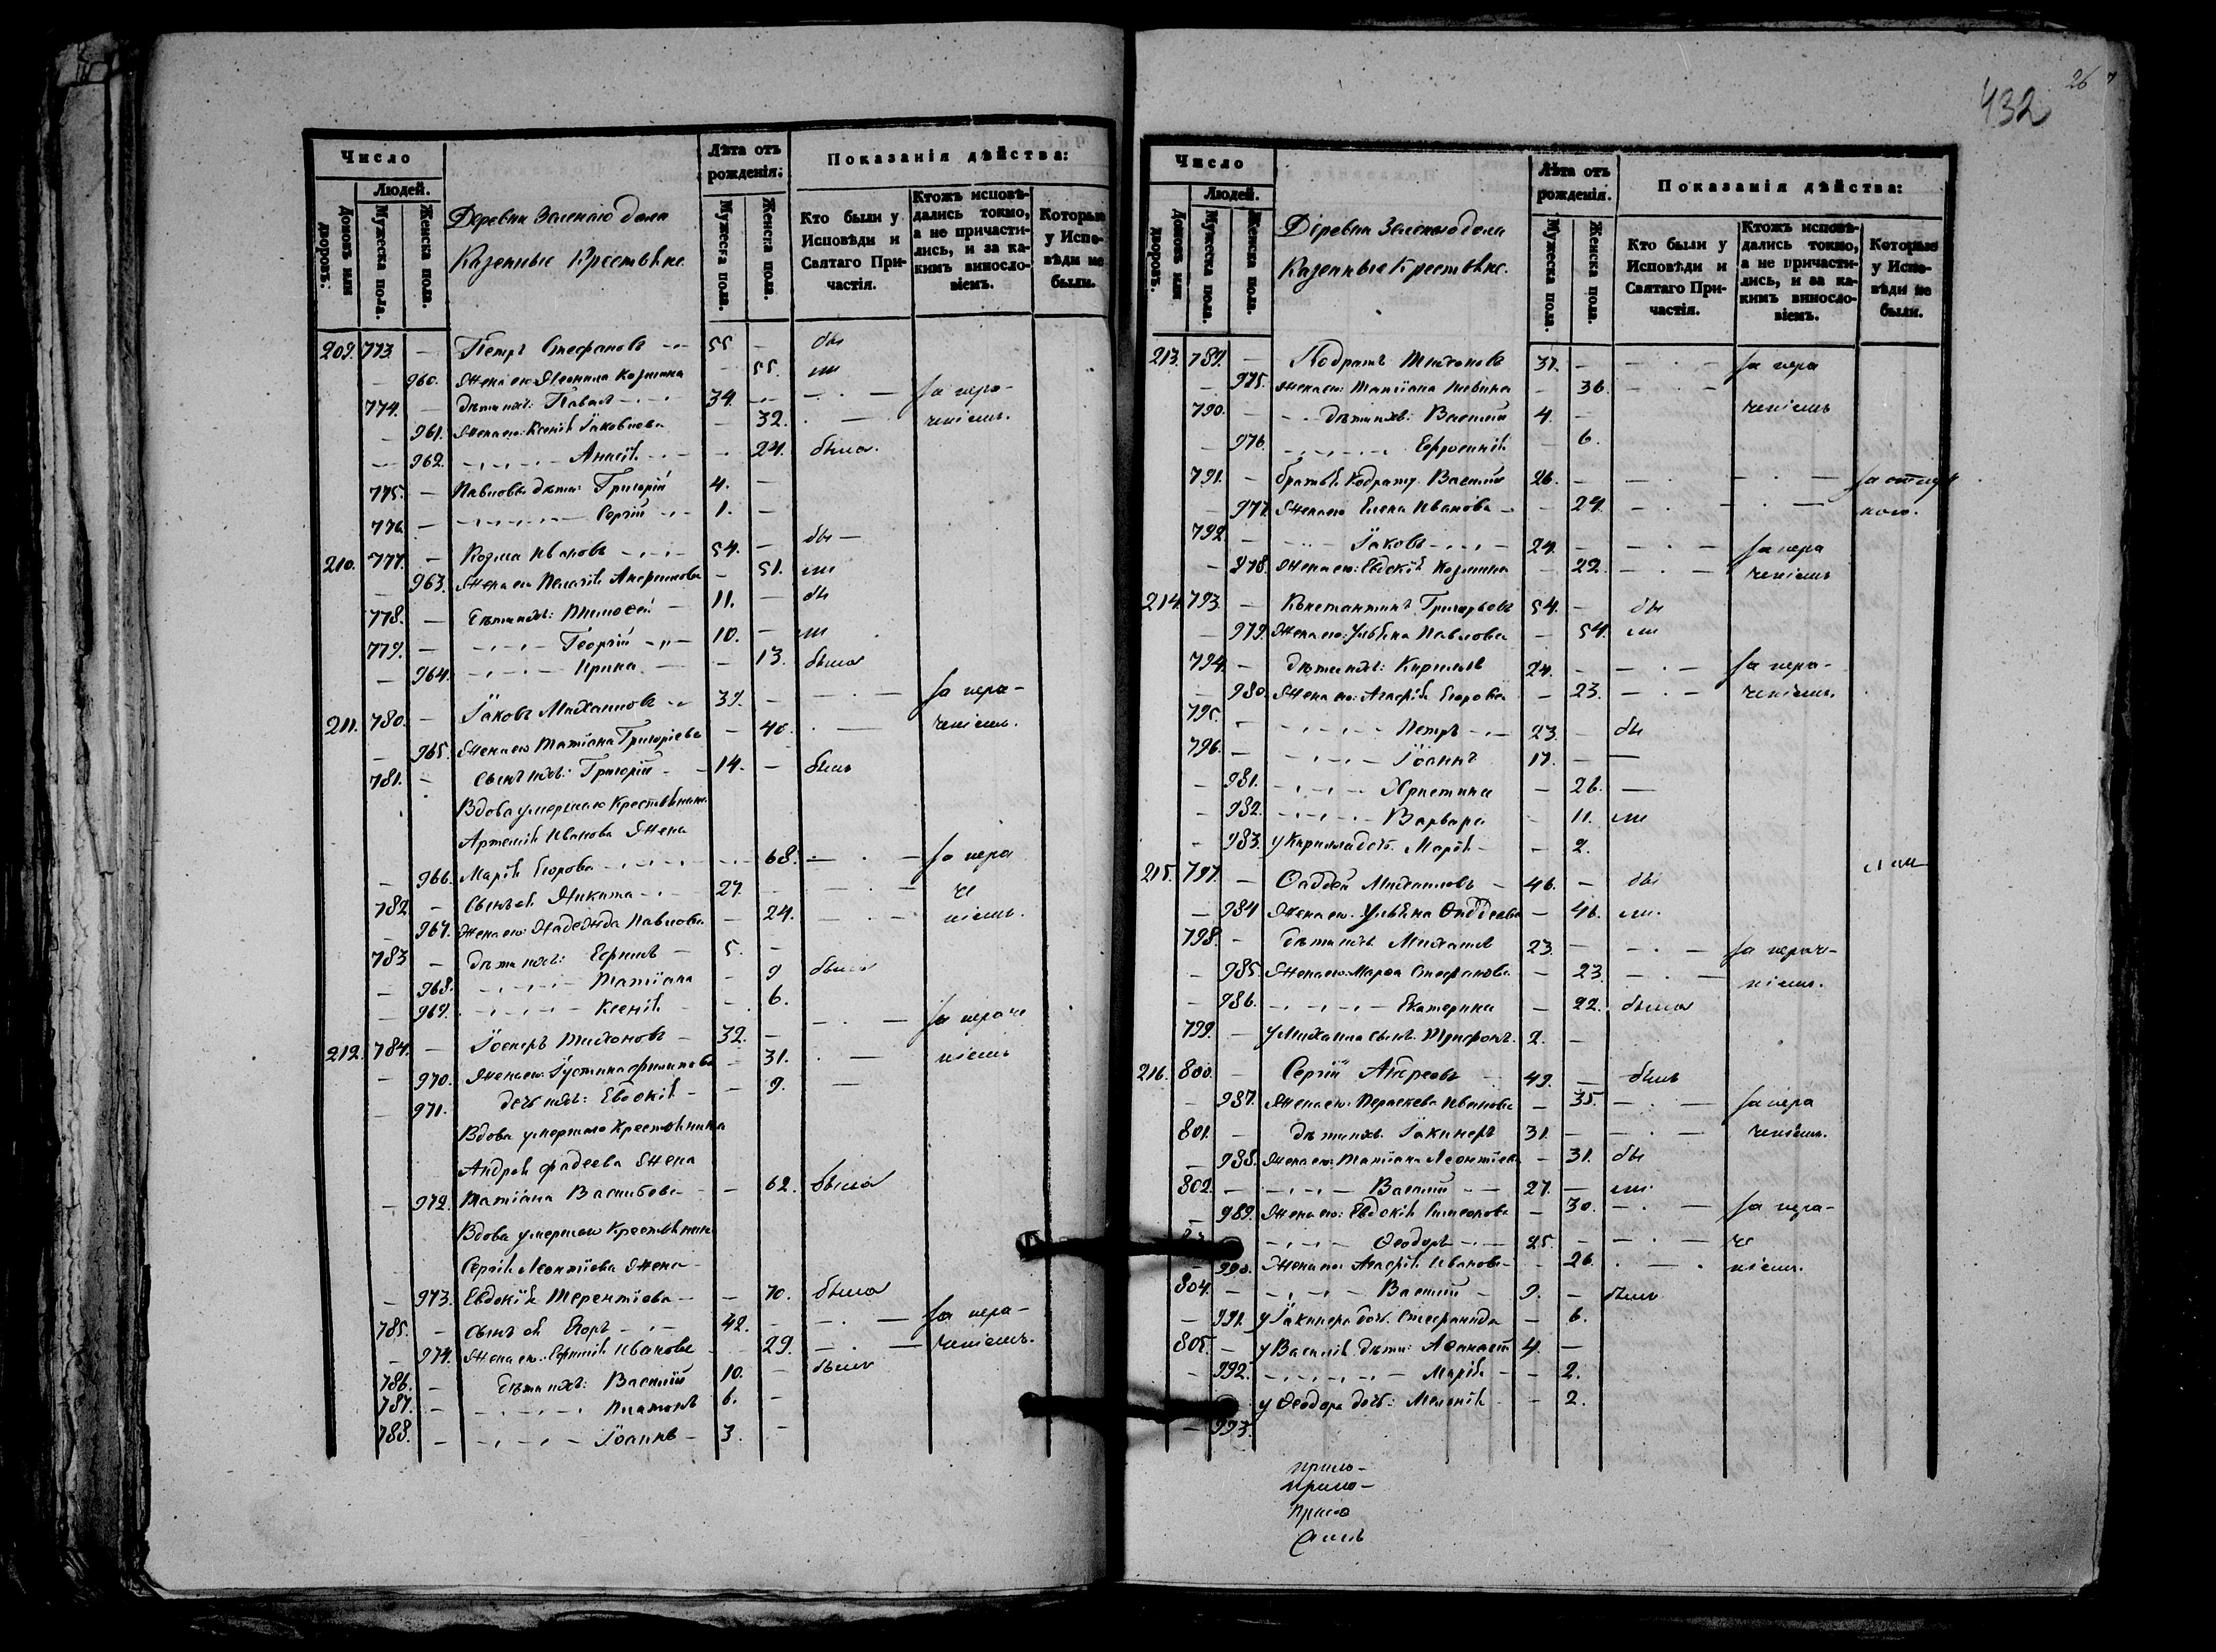 432
26
Число
Людей.
Домовъ или дворовъ.
Мужеска пола.
Женска пола.
Деревни Зеленаго дола
Казенные Крестьяне
Лѣта отъ рожденія:
Мужеска пола.
Женска пола.
Показанія дѣйства:
Кто были у Исповѣди и Святаго Причастія.
Ктожъ исповѣдались токмо, а не причастились, и за какимъ винословіемъ.
Которые у Исповѣди не были.
209. 773 — Петръ Стефановъ 55 — бы
— 960. Жена его Леонила Козмина — 55. ли
774. — дѣти ихъ: Павелъ 34. — за нера-
— 961. Жена его: Ксенія Іаковлева — 32. ченіемъ.
— 962. Анисія — 24. была.
775. — Павловы дѣти: Григорій 4. —
776. — Сергій 1. —
210. 777. — Козма Ивановъ 54. — бы
— 963. Жена его Пелагія — 51. ли
778. — Дѣти ихъ: Тимоѳей 11. — бы
779. — Георгій 10. — ли
— 964. Ирина — 13. была
211. 780. — Іаковъ Михаиловъ 39. — за нера-
— 965. Жена его Татіана Григоріева — 40. ченіемъ.
781. — сынъ ихъ: Григорій 14. — былъ
Вдова умершаго Крестьянина
Артемія Иванова Жена
— 966. Марія Егорова 68. за нера
782. — Сынъ ея Никита 27. — че
— 967. Жена его: Надежда Павлова — 24. ніемъ.
783 — дѣти ихъ: Ефимъ 5. —
— 968. Татіана — 9 была
— 969. Ксенія — 6.
212. 784. — Тихоновъ 32. — за нераче
— 970. Жена его: Іустина Филипова — 31. ніемъ
— 971. дочь ихъ: Евдокія — 9.
Вдова умершаго Крестьянина
Андрея Фадеева Жена
— 972. Татіана Васильева — 62. была
Вдова умершаго Крестьянина
Сергія Леонтіева Жена
— 973. Евдокія Терентіева — 70. была
785. — Сынъ ея Егоръ 42. — за нера-
— 974. Жена его: Ивановна — 29. ченіемъ.
786. — дѣти ихъ: Василій 10. — былъ
787. — Платонъ 6. —
788. — Іоаннъ 3. —
Число
Людей.
Домовъ или дворовъ.
Мужеска пола.
Женска пола.
Деревни Зеленаго дола
Казенные Крестьяне.
Лѣта отъ рожденія.
Мужеска пола.
Женска пола.
Показанія дѣйства:
Кто были у Исповѣди и Святаго Причастія.
Ктожъ исповѣдались токмо, а не причастились, и за какимъ винословіемъ.
Которые у Исповѣди не были.
213. 789. — Кодратъ Тихоновъ 37. — за нера
— 975. Жена его: Татіана — 36.
790. — дѣти ихъ: Василій 4. — ченіемъ
— 976. Ефросинія — 6.
791. — братья Кодрату Василій 26. — за отлуч
— 977. Жена его Елена Иванова — 24.
792. — Іаковъ 24. — за нера
— 978. Жена его: Евдокія Козмина — 22. ченіемъ
214. 793. — Константинъ Григорьевъ 54. — бы
— 979. Жена его: Ульяна Павлова — 54. ли
794. — дѣти ихъ: Кириллъ 24. — за нера-
— 980. Жена его: Агафія Егорова — 23. ченіемъ.
795. — Петръ 23. — бы
796. — Іоаннъ 17. —
— 981. Христина — 26.
— 982. Варвара — 11. ли
— 983. у Кирилла дочь. Марія — 2.
215. 797. — Ѳаддей Михаиловъ 46. — бы
— 984 Жена его. Ульяна Ѳаддеева — 46. ли.
798. — дѣти ихъ Михаилъ 23 — за нераче-
— 985 Жена его: Марѳа Стефанова — 23 ніемъ.
— 986. Екатерина — 22. была
799. — у Михаила сынъ Трифонъ. 2. —
216. 800. — Сергій Андреевъ 49. — былъ
— 987. Жена его: Параскева Иванова — 35. за нера
801. — дѣти ихъ. Іакинфъ 31. — ченіемъ.
— 988. Жена его: Татіана Леонтіева — 31. бы
802. — Василій 27. — ли
— 989. Жена его: Евдокія Симеонова — 30. за нера-
— Ѳеодоръ 25. — че
— 990. Жена его Агафія Иванова — 26. ніемъ.
804. — Василій 9. — былъ
— 991. у Іакинфа дочь. Стефанида — 6.
805. — у Василія дѣти: Аѳанасій 4. —
— 992. Марія — 2.
— 993. у Ѳеодора дочь: Меланія — 2.